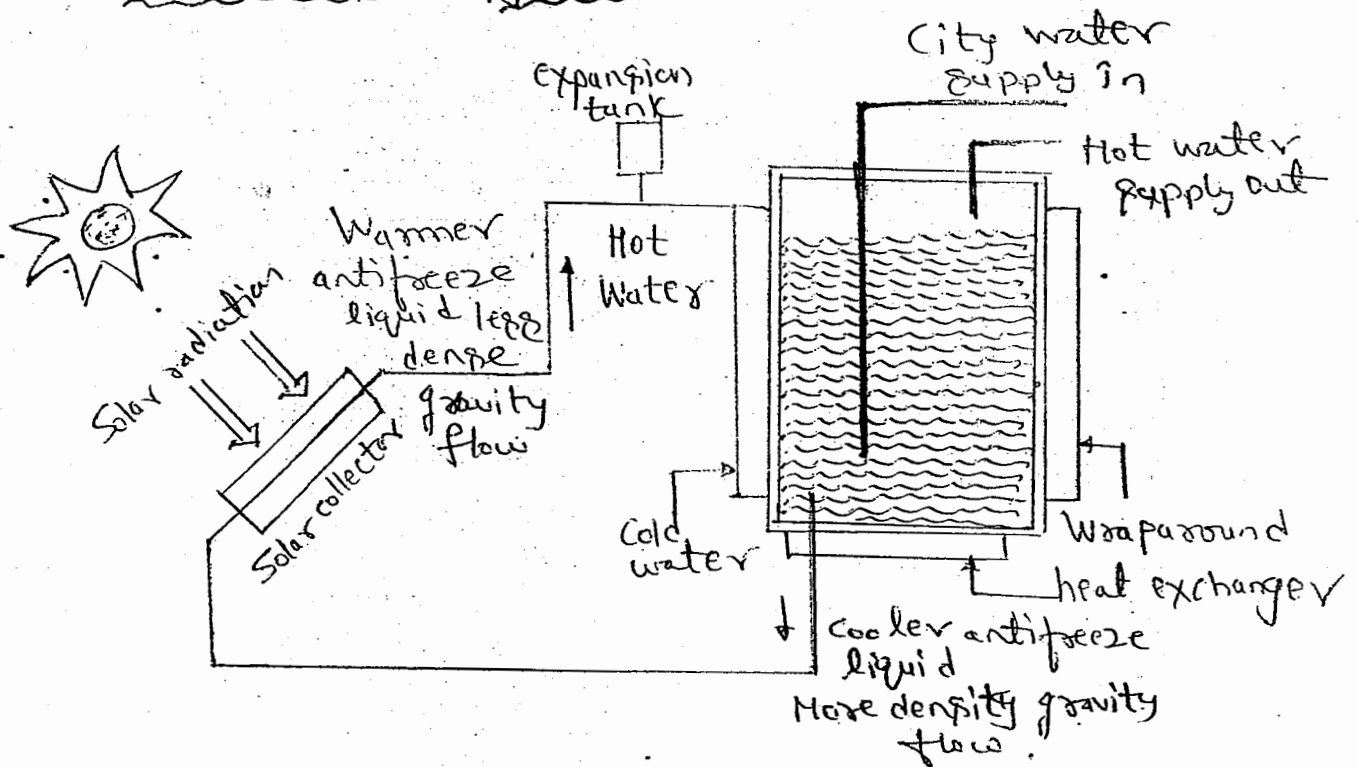 City water
supply in
expansion
tank
Hot water
supply out
Warmer
antifreeze
liquid less
dense
gravity
flow
Hot
Water
Solar radiation
Solar collector
Cold
water
Wraparound
heat exchanger
cooler antifreeze
liquid
More density gravity
flow.